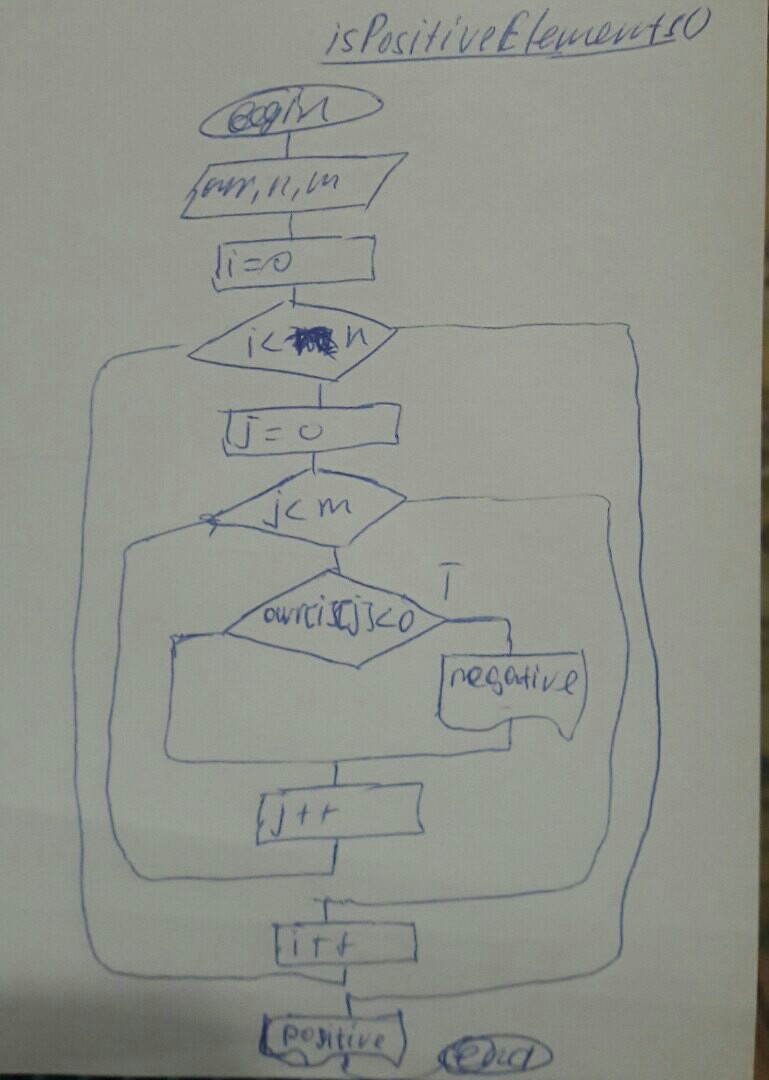 isPositiveElements()
begin
arr, n, m
i=0
i< n
j=0
j<m
arr[i][j]<0
T
negative
j++
i++
positive
end